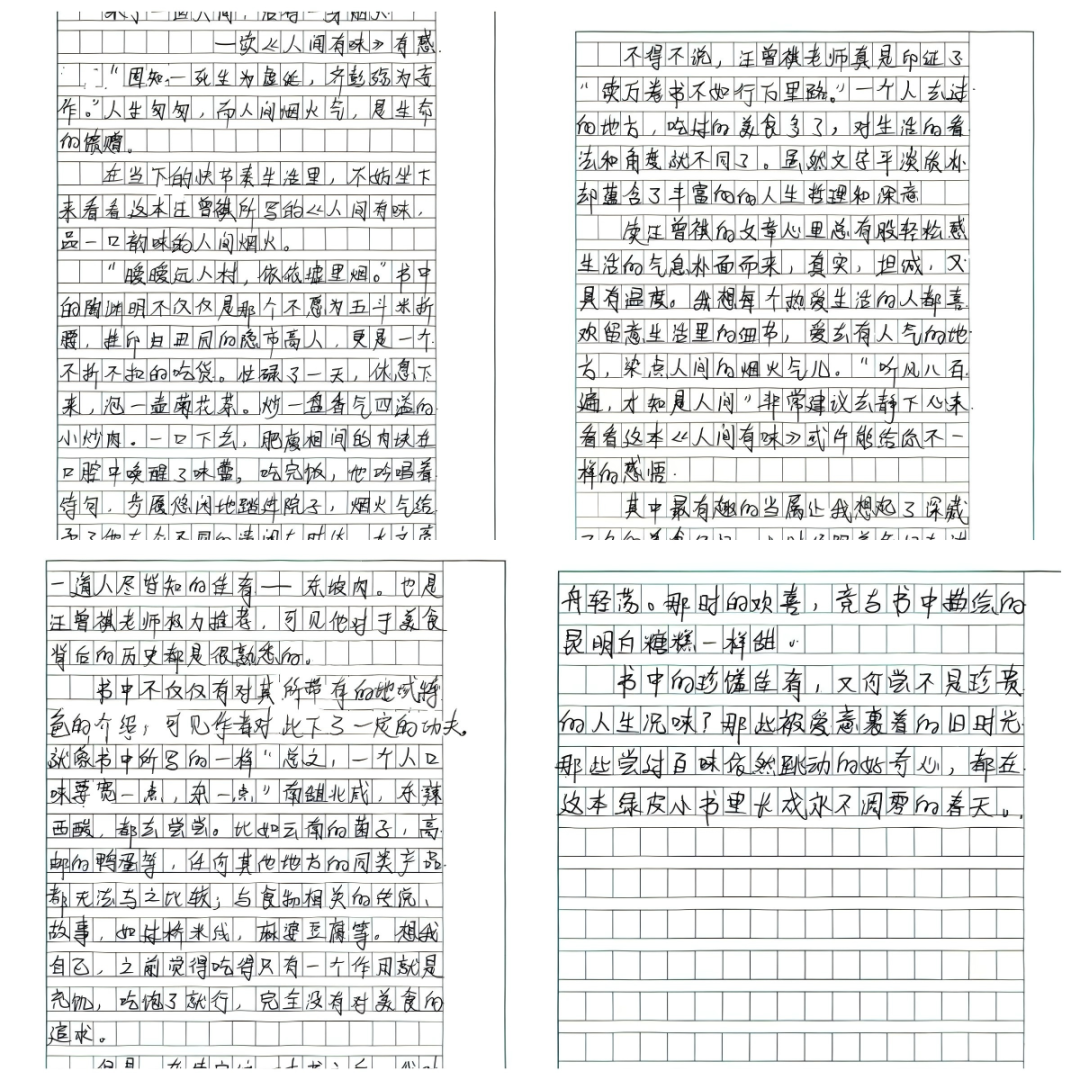 来了一回人间，沾得一身烟火
一读《人间有味》有感
"固知一死生为虚诞，齐彭殇为妄
作。"人生匆匆，而人间烟火气，是生命
的馈赠。
在当下的快节奏生活里，不妨坐下
来看看这本汪曾祺所写的《人间有味，
品一口韵味的人间烟火。
"暧暧远人村，依依墟里烟。"书中
的陶渊明不仅仅是那个不愿为五斗米折
腰，挂印归丑园的隐市高人，更是一个
不折不扣的吃货。忙碌了一天，休息下
来，泡一壶菊花茶。炒一盘香气四溢的
小炒肉。一口下去，肥瘦相间的肉块在
口腔中唤醒了味蕾。吃完饭，他吟唱着
诗句，步履悠闲地踏进院子，烟火气给
不得不说，汪曾祺老师真是印证了
"读万卷书不如行万里路。"一个人去过
的地方，吃过的美食多了，对生活的看
法和角度就不同了。虽然文字平淡质朴
却蕴含了丰富的的人生哲理和深意
读汪曾祺的文章心里总有股轻松感
生活的气息朴面而来，真实，坦诚，又
具有温度。我想每个热爱生活的人都喜
欢留意生活里的细节，爱去有人气的地
方，染点人间的烟火气儿。"听风八百
遍，才知是人间"非常建议去静下心来
看看这本《人间有味》或许能给你不一
样的感悟.
其中最有趣的当属让我想起了深藏
一道人尽皆知的佳肴——东坡肉。也是
汪曾祺老师极力推荐，可见他对于美食
背后的历史都是很熟悉的。
书中不仅仅有对其所带有的地域特
色的介绍，可见作者对此下了一定的功夫。
就像书中所写的一样"总之，一个人口
味要宽一点，杂一点"南甜北咸，东辣
西酸，都去尝尝。比如云南的菌子，高
邮的鸭蛋等，任何其他地方的同类产品
都无法与之比较；与食物相关的传说、
故事，如过桥米线，麻婆豆腐等。想我
自己，之前觉得吃得只有一个作用就是
充饥，吃饱了就行，完全没有对美食的
追求。
舟轻荡。那时的欢喜，竟与书中描绘的
昆明白糖糕一样甜。
书中的珍馐佳肴，又何尝不是珍贵
的人生况味？那些被爱意裹着的旧时光
那些尝过百味依然跳动的好奇心，都在
这本绿皮小书里长成永不凋零的春天。